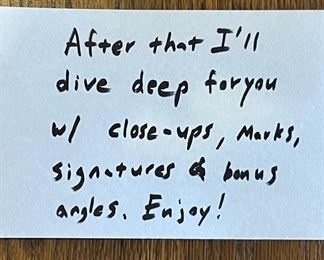 After that I'll
dive deep for you
w/ close-ups, Marks,
signatures & bonus
angles. Enjoy!